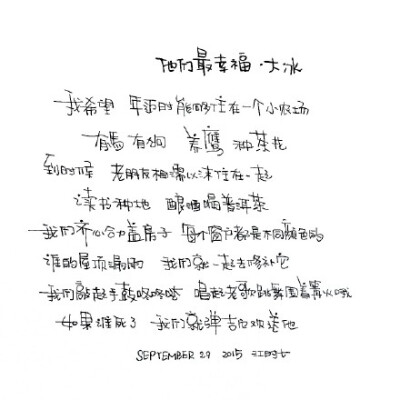 他们最幸福·大冰
我希望 年迈时能够住在一个小农场
有馬有狗 养鹰种茶花
到时候 老朋友相濡以沫住在一起
读书种地 酿酒喝普洱茶
我们齐心合力盖房子 每个窗户都是不同颜色的
谁的屋顶漏雨 我们就一起去修补它
我们敲起手鼓咚咚嗒 唱起老歌跳舞围着篝火哦
如果谁死了 我们就弹吉他欢送他
SEPTEMBER 29 2015